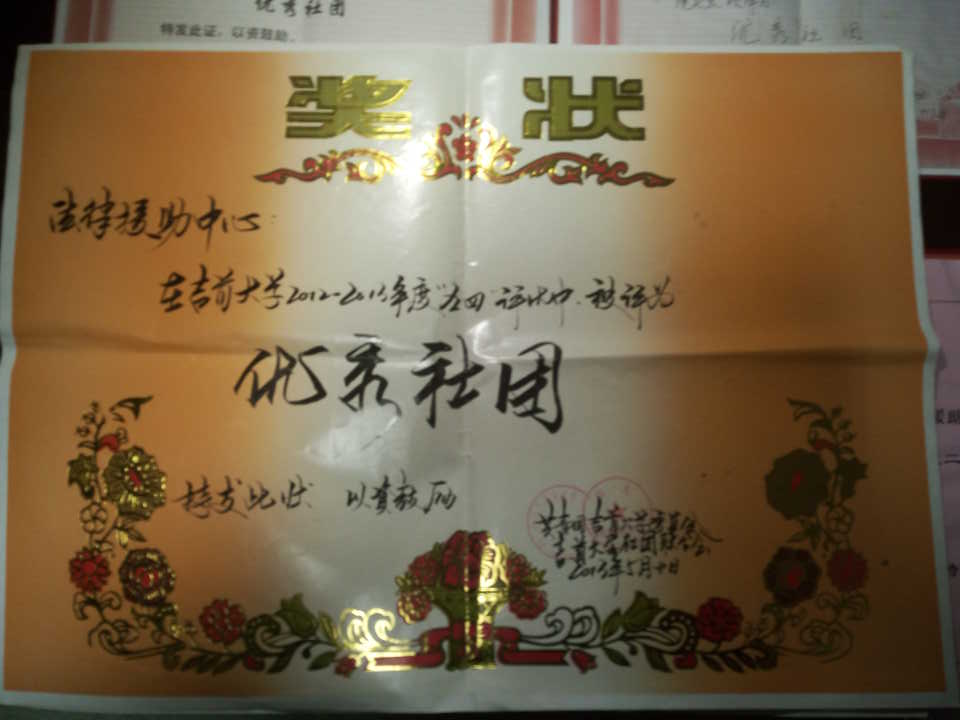 优秀社团
特发此证,以资鼓励。
优秀社团
奖状
法律援助中心:
在吉首大学2012-2013年度"五四"评比中,被评为
优秀社团
特发此状 以资鼓励
共青团吉首大学委员会
吉首大学社团联合会
2013年5月十日